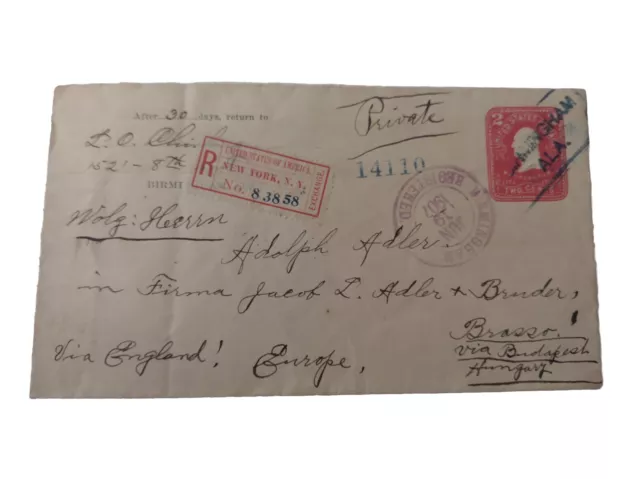 After 30 days, return to
L. O.
1521 - 8th
BIRMI
R
UNITED STATES OF AMERICA.
NEW YORK, N. Y.
No. 83858
EXCHANGE.
Private
14110
2
TWO CENTS
INGHAM
ALA.
REGISTERED
1907
Wolg: Herrn
Adolph Adler
in Firma Jacob L. Adler & Bruder,
Brasso!
via Budapest
Hungary
Via England! Europe,